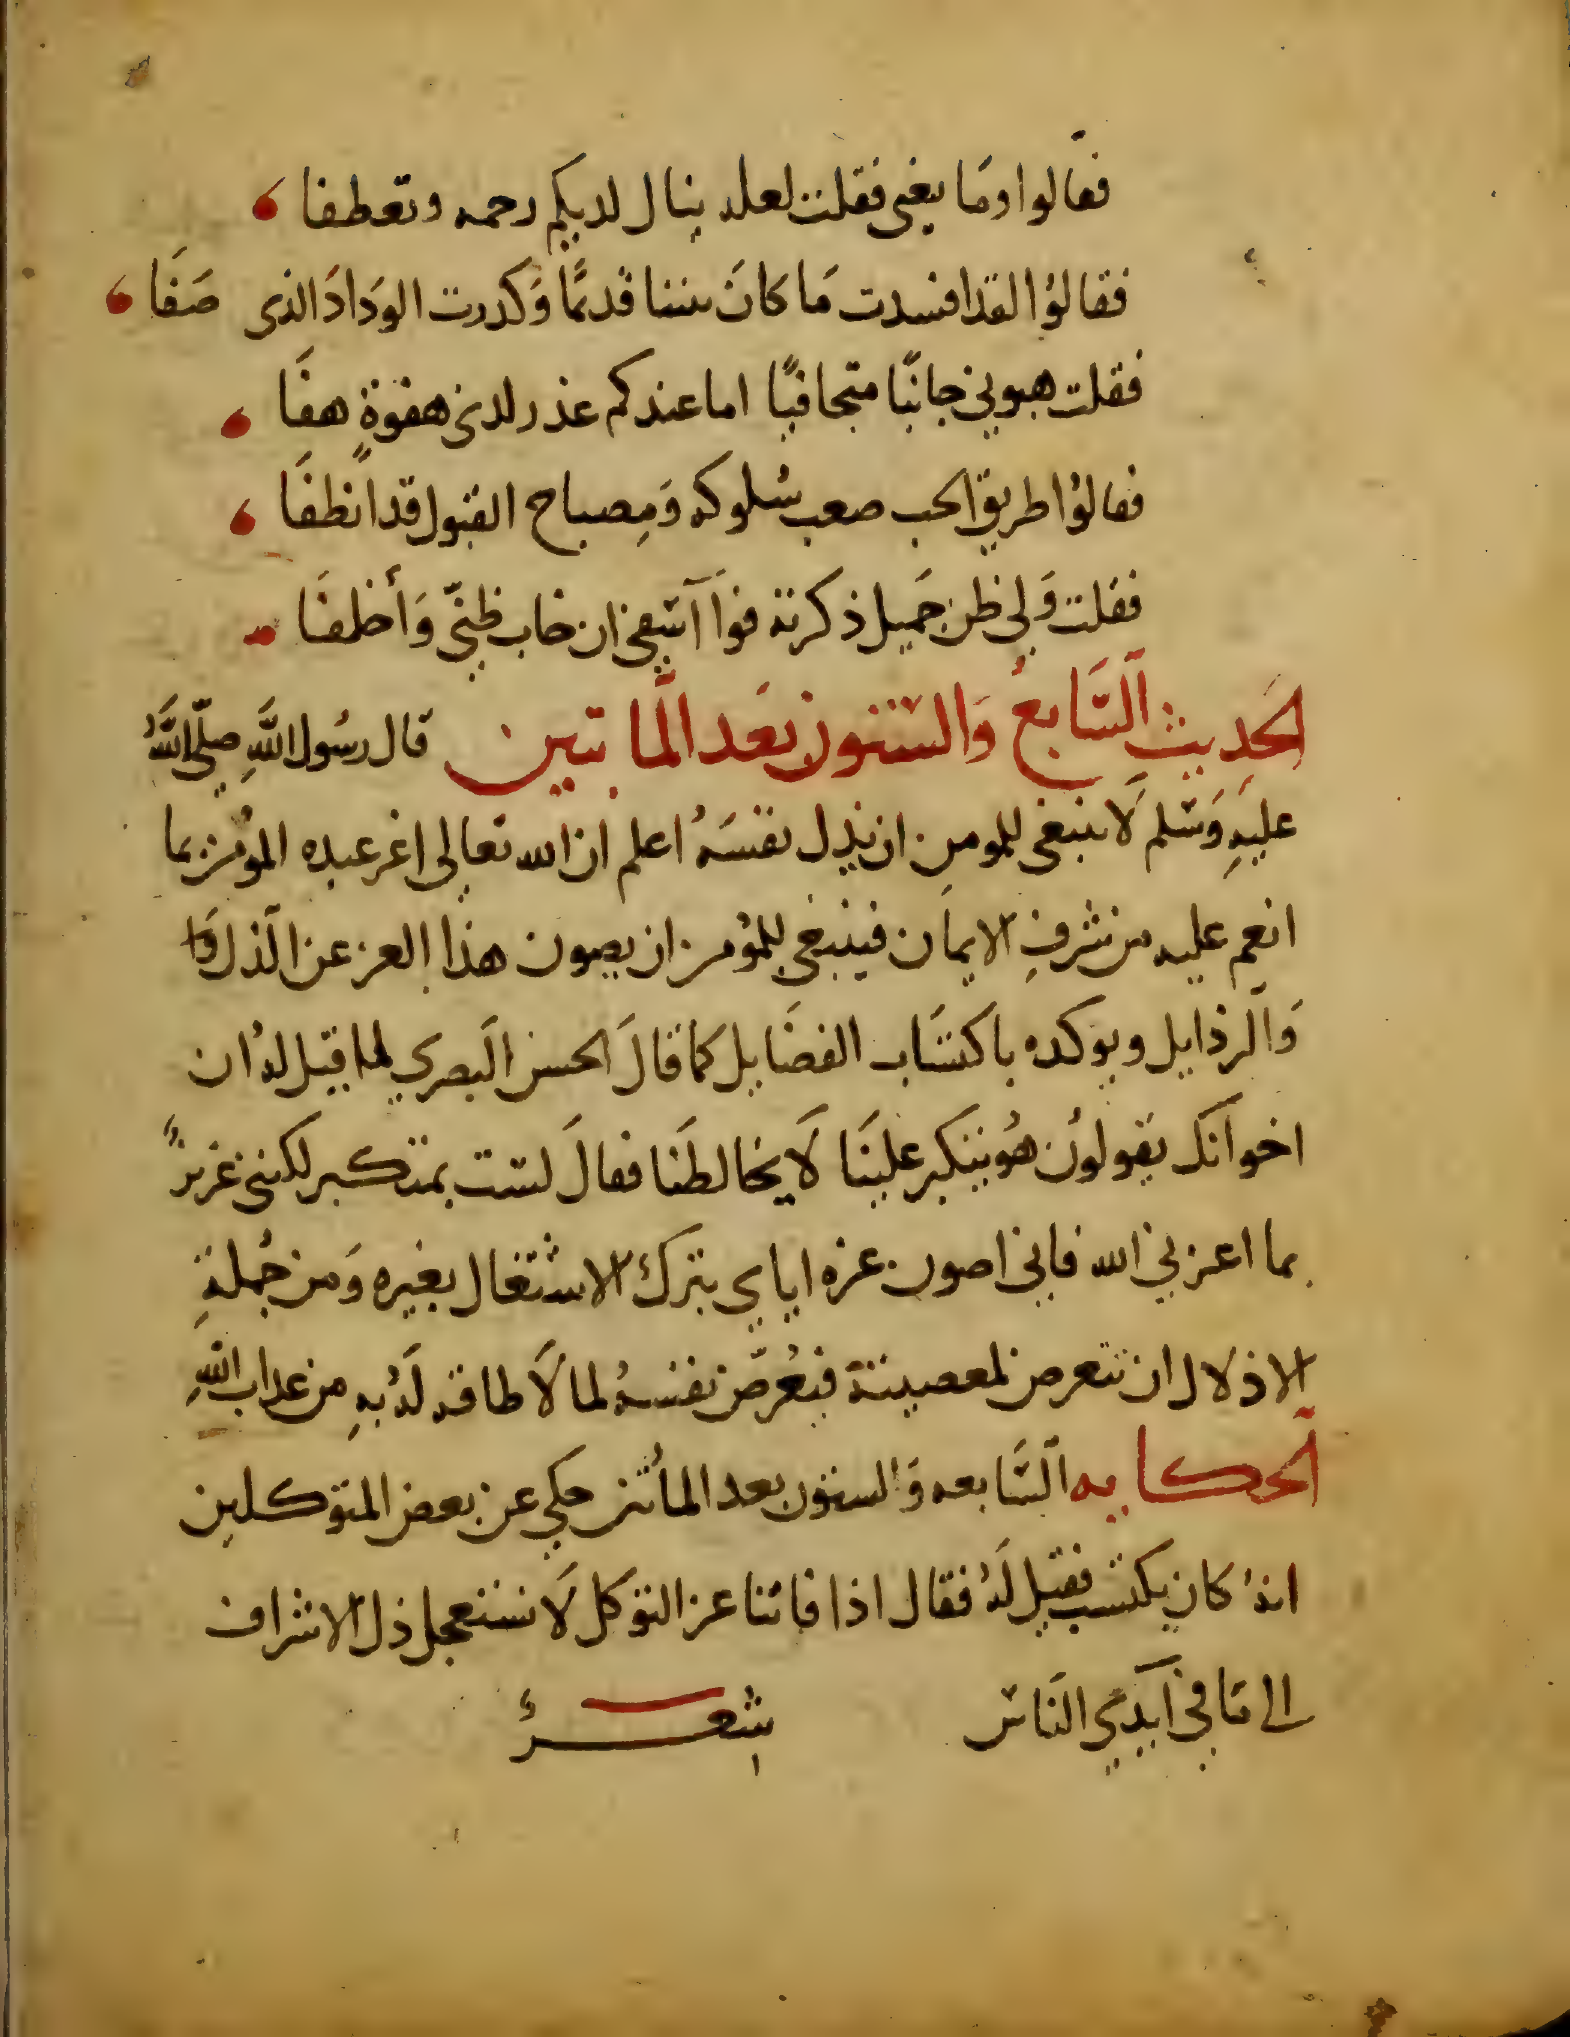 فقالوا وما يغنى فقلت لعله ينال لديكم رحمه وتعطفا
فقالوا لقد افسدت ما كان بيننا قديمًا وكدرت الوداد الذى صفا
فقلت هبونى جانيًا متجافيًا اما عندكم عذر لدى هفوة هفا
فقالوا طريق الحب صعب سلوكه ومصباح القبول قد انطفا
فقلت ولى ظن جميل ذكرته فوا آسفى ان خاب ظنّى وأخلفا
الحديث السابع والستون بعد المايتين قال رسول الله صلى الله
عليه وسلم لا ينبغى للمومن ان يذل نفسه اعلم ان الله تعالى اعز عبده المؤمن بما
انعم عليه من شرف الايمان فينبغى للمؤمن ان يصون هذا العز عن الذل
والرذايل ويوكده باكتساب الفضايل كما قال الحسن البصري لما قيل له ان
اخوانك يقولون هو يتكبر علينا لا يخالطنا فقال لست بمتكبر لكننى عزيزٌ
بما اعزني الله فانى اصون عزه اياي بترك الاشتغال بغيره ومن جملة
الاذلال ان يتعرض لمعصيته فيعرّض نفسه لما لا طاقه له به من عذاب الله
الحكايه السابعه والستون بعد المأتين حكي عن بعض المتوكلين
انه كان يكتسب فقيل له فقال اذا فاتنا عز التوكل لا نستعجل ذل الاشراف
الى ما في ايدي الناس شعرٌ